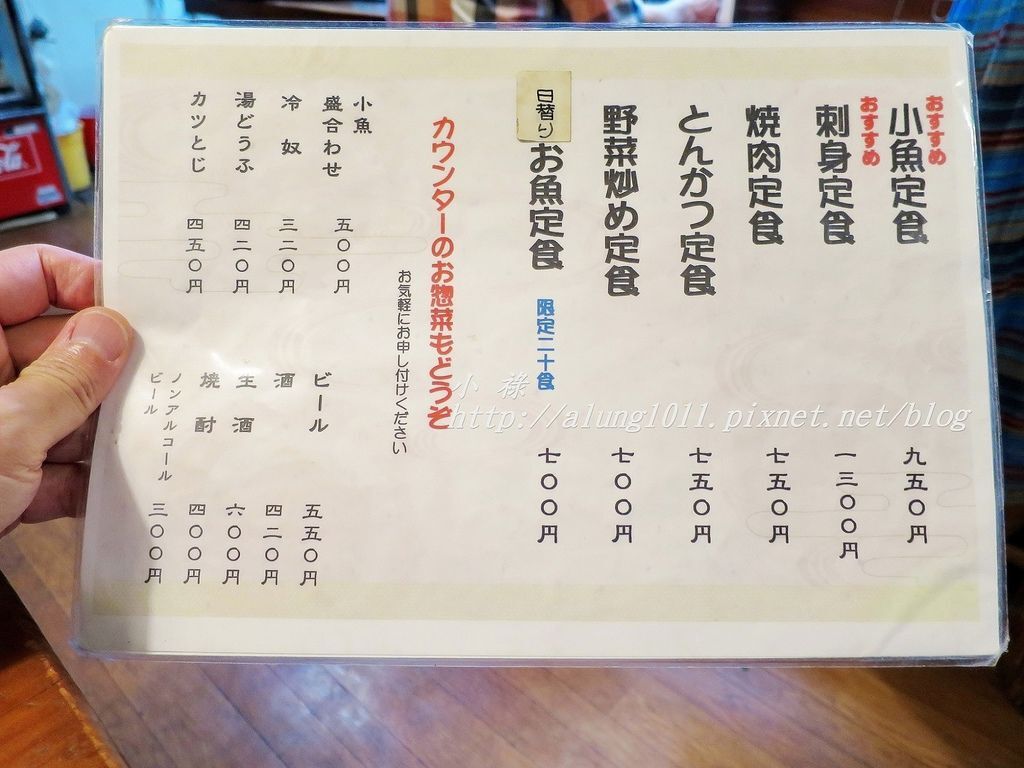 おすすめ
小魚定食 九五〇円
おすすめ
刺身定食 一三〇〇円
焼肉定食 七五〇円
とんかつ定食 七五〇円
野菜炒め定食 七〇〇円
日替り お魚定食 限定二十食 七〇〇円
カウンターのお惣菜もどうぞ
お気軽にお申し付けください
小魚
盛合わせ 五〇〇円
冷奴 三二〇円
湯どうふ 四二〇円
カツとじ 四五〇円
ビール 五五〇円
酒 四二〇円
生酒 六〇〇円
焼酎 四〇〇円
ノンアルコール
ビール 三〇〇円
小 祿
http://alung1011.pixnet.net/blog